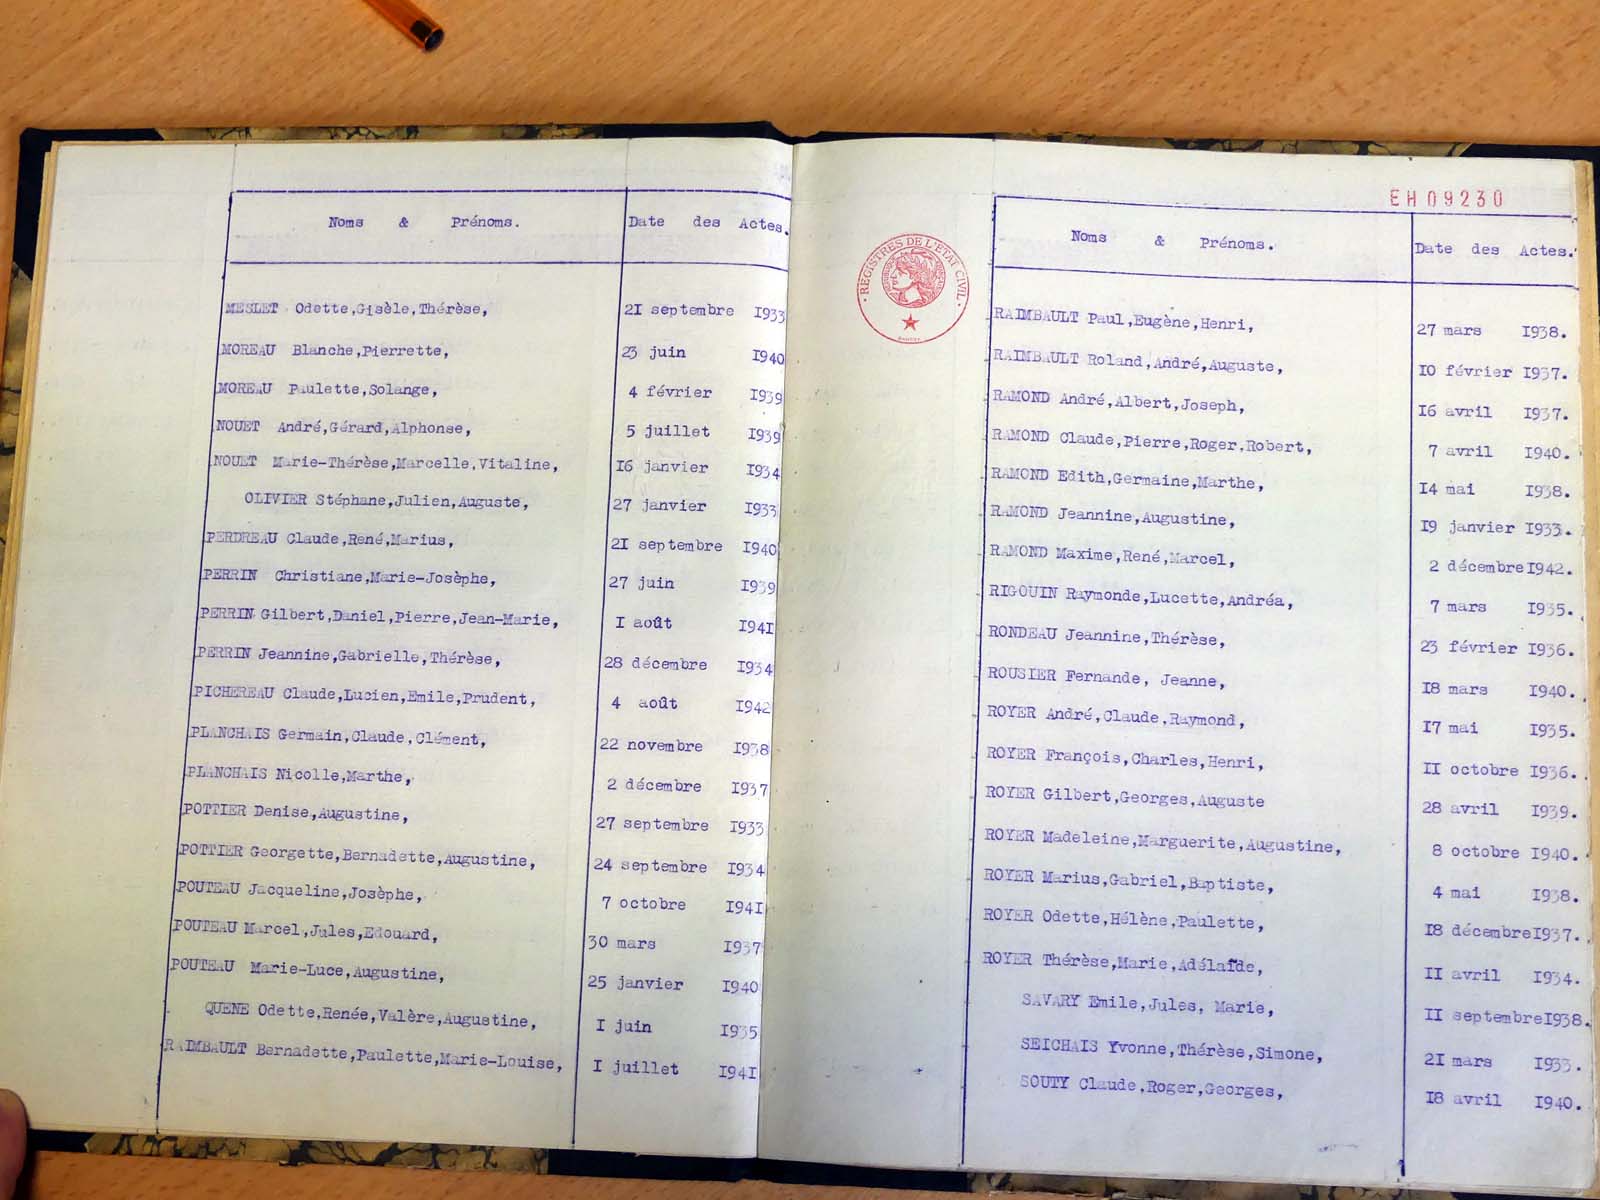 Noms & Prénoms. Date des Actes.
MESLET Odette,Gisèle,Thérèse, 21 septembre 1933
MOREAU Blanche,Pierrette, 23 juin 1940
MOREAU Paulette,Solange, 4 février 1939
NOUET André,Gérard,Alphonse, 5 juillet 1939
NOUET Marie-Thérèse,Marcelle,Vitaline, 16 janvier 1934
OLIVIER Stéphane,Julien,Auguste, 27 janvier 1933
PERDREAU Claude,René,Marius, 21 septembre 1940
PERRIN Christiane,Marie-Josèphe, 27 juin 1939
PERRIN Gilbert,Daniel,Pierre,Jean-Marie, 1 août 1941
PERRIN Jeannine,Gabrielle,Thérèse, 28 décembre 1934
PICHEREAU Claude,Lucien,Emile,Prudent, 4 août 1942
PLANCHAIS Germain,Claude,Clément, 22 novembre 1938
PLANCHAIS Nicolle,Marthe, 2 décembre 1937
POTTIER Denise,Augustine, 27 septembre 1933
POTTIER Georgette,Bernadette,Augustine, 24 septembre 1934
POUTEAU Jacqueline,Josèphe, 7 octobre 1941
POUTEAU Marcel,Jules,Edouard, 30 mars 1937
POUTEAU Marie-Luce,Augustine, 25 janvier 1940
QUENE Odette,Renée,Valère,Augustine, 1 juin 1935
RAIMBAULT Bernadette,Paulette,Marie-Louise, 1 juillet 1941
EH09230
REGISTRES DE L'ETAT CIVIL
Noms & Prénoms. Date des Actes.
RAIMBAULT Paul,Eugène,Henri, 27 mars 1938.
RAIMBAULT Roland,André,Auguste, 10 février 1937.
RAMOND André,Albert,Joseph, 16 avril 1937.
RAMOND Claude,Pierre,Roger,Robert, 7 avril 1940.
RAMOND Edith,Germaine,Marthe, 14 mai 1938.
RAMOND Jeannine,Augustine, 19 janvier 1933.
RAMOND Maxime,René,Marcel, 2 décembre 1942.
RIGOUIN Raymonde,Lucette,Andréa, 7 mars 1935.
RONDEAU Jeannine,Thérèse, 23 février 1936.
ROUSIER Fernande, Jeanne, 18 mars 1940.
ROYER André,Claude,Raymond, 17 mai 1935.
ROYER François,Charles,Henri, 11 octobre 1936.
ROYER Gilbert,Georges,Auguste 28 avril 1939.
ROYER Madeleine,Marguerite,Augustine, 8 octobre 1940.
ROYER Marius,Gabriel,Baptiste, 4 mai 1938.
ROYER Odette,Hélène,Paulette, 18 décembre 1937.
ROYER Thérèse,Marie,Adélaïde, 11 avril 1934.
SAVARY Emile,Jules, Marie, 11 septembre 1938.
SEICHAIS Yvonne,Thérèse,Simone, 21 mars 1933.
SOUTY Claude,Roger,Georges, 18 avril 1940.